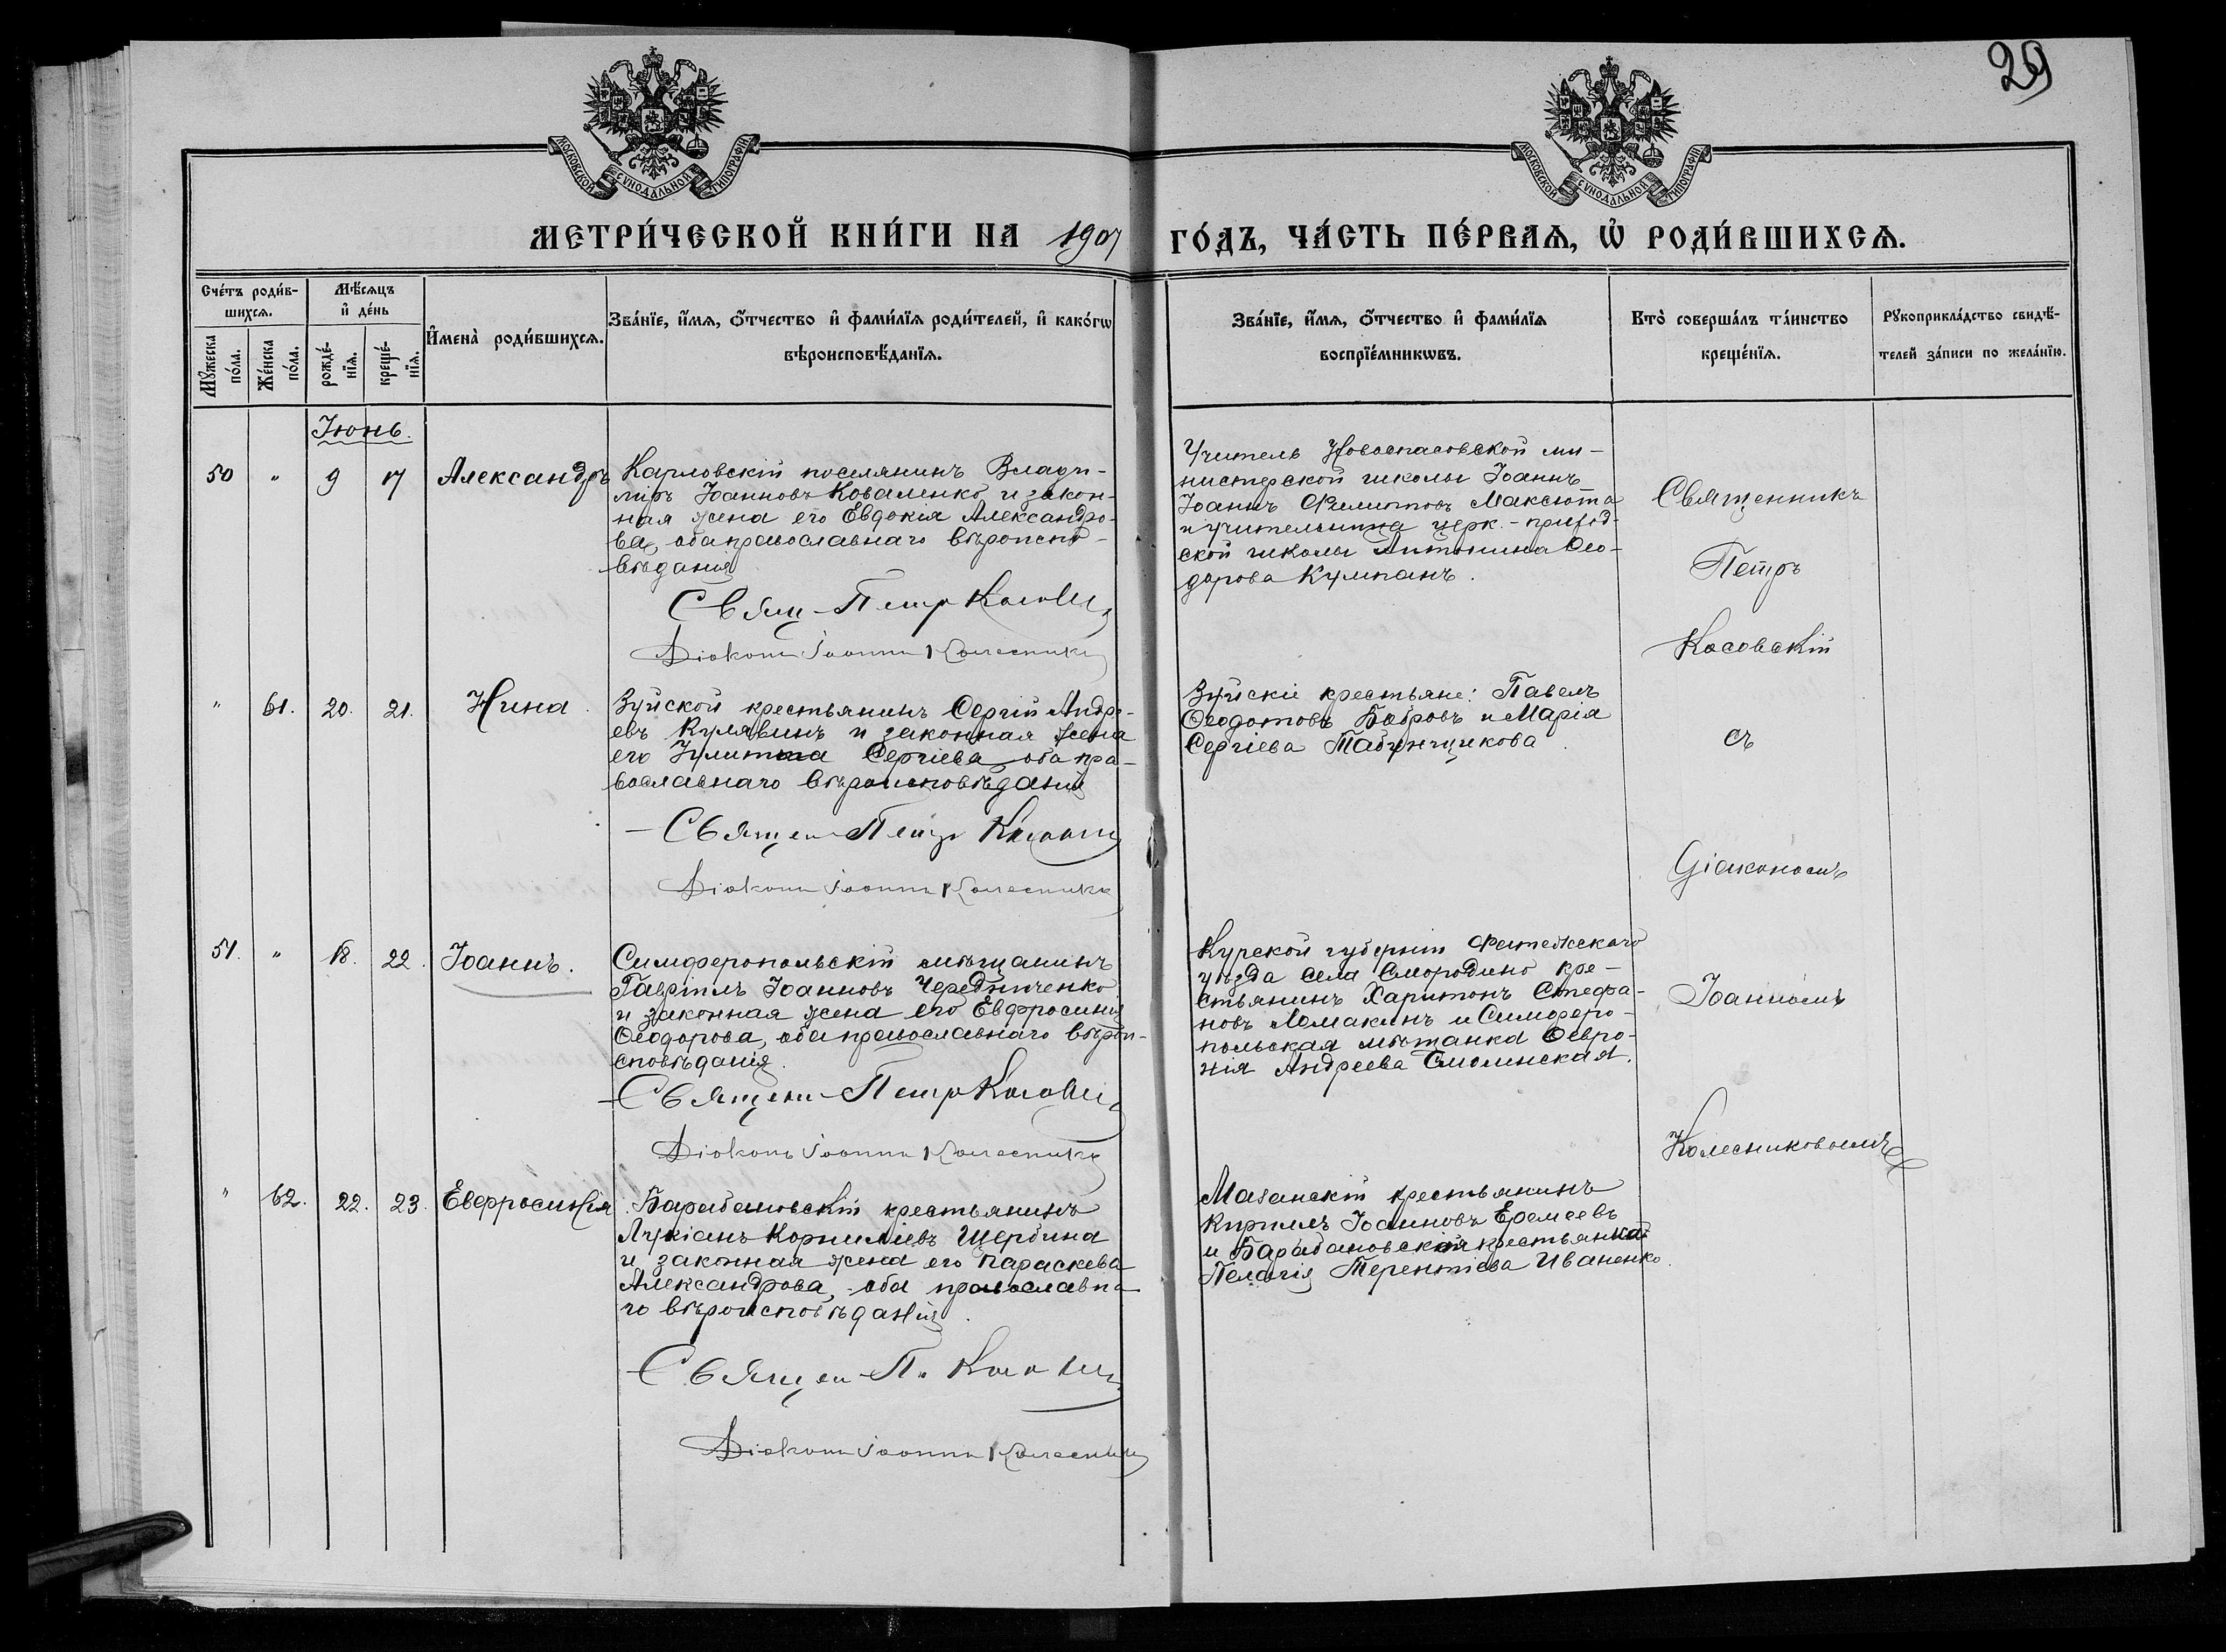 29
МОСКОВСКОЙ СѴНОДАЛЬНОЙ ТИПОГРАФІИ
МОСКОВСКОЙ СѴНОДАЛЬНОЙ ТИПОГРАФІИ
МЕТРИ́ЧЕСКОЙ КНИ́ГИ НА 1907 ГО́ДЪ, ЧА́СТЬ ПЕ́РВАѦ, Ѡ҆ РОДИ́ВШИХСѦ.
Сче́тъ роди́в-
шихсѧ.
Мꙋ́жеска по́ла.
Же́нска по́ла.
Мѣ́сѧцъ
и҆ де́нь
рожде́-
нїѧ.
креще́-
нїѧ.
И҆мена̀ роди́вшихсѧ.
Зва́нїе, и҆́мѧ, ѻ҆́тчество и҆ фами́лїѧ роди́телей, и҆ како́гѡ
вѣроисповѣ́данїѧ.
Зва́нїе, и҆́мѧ, ѻ҆́тчество и҆ фами́лїѧ
воспрїе́мникѡвъ.
Кто̀ соверша́лъ та́инство
креще́нїѧ.
Рꙋкоприкла́дство свидѣ́-
телей за́писи по жела́нїю.
Іюнь.
50 " 9 17 Александръ
Карловскій поселянинъ Влади-
міръ Іоанновъ Коваленко и закон-
ная жена его Евдокія Александро-
ва, оба православнаго вѣроиспо-
вѣданія
Свящ Петр
Діаконъ Іоаннъ Колесникъ
Учитель Новоспасовской ми-
нистерской школы Іоаннъ
Іоаннъ Филиповъ Максюта
и учительница церк.-приход-
ской школы Антонина Ѳео-
дорова Кумпанъ.
Священникъ
Петръ
Косовскій
" 61. 20. 21. Нина.
Зуйской крестьянинъ Сергій Андре-
евъ Кулявинъ и законная жена
его Іулитта Сергіева оба пра-
вославнаго вѣроисповѣданія
Священ Петръ
Діаконъ Іоаннъ Колесникъ
Зуйскіе крестьяне: Павелъ
Ѳеодотовъ Бобровъ и Марія
Сергіева Табунщикова.
съ
Діакономъ
51. " 18. 22. Іоаннъ.
Симферопольскій мѣщанинъ
Гавріилъ Іоанновъ Чередниченко
и законная жена его Евфросинія
Ѳеодорова, оба православнаго вѣрои-
сповѣданія.
Священ Петр
Діаконъ Іоаннъ Колесникъ
Курской губерніи Фатежскаго
уѣзда села Смородино кре-
стьянинъ Харитонъ Стефа-
новъ Ломакинъ и Симферо-
польская мѣщанка Ѳевро-
нія Андреева Смолинская.
Іоанномъ
Колесниковомъ
" 62. 22. 23. Евфросинія
Барабановскій крестьянинъ
Лукіанъ Корниліевъ Щербина
и законная жена его Параскева
Александрова, оба православна-
го вѣроисповѣданія.
Священ П.
Діаконъ Іоаннъ Колесникъ
Мазанскій крестьянинъ
Кириллъ Іоанновъ Еремеевъ
и Барабановская крестьянка
Пелагія Терентіева Иваненко.